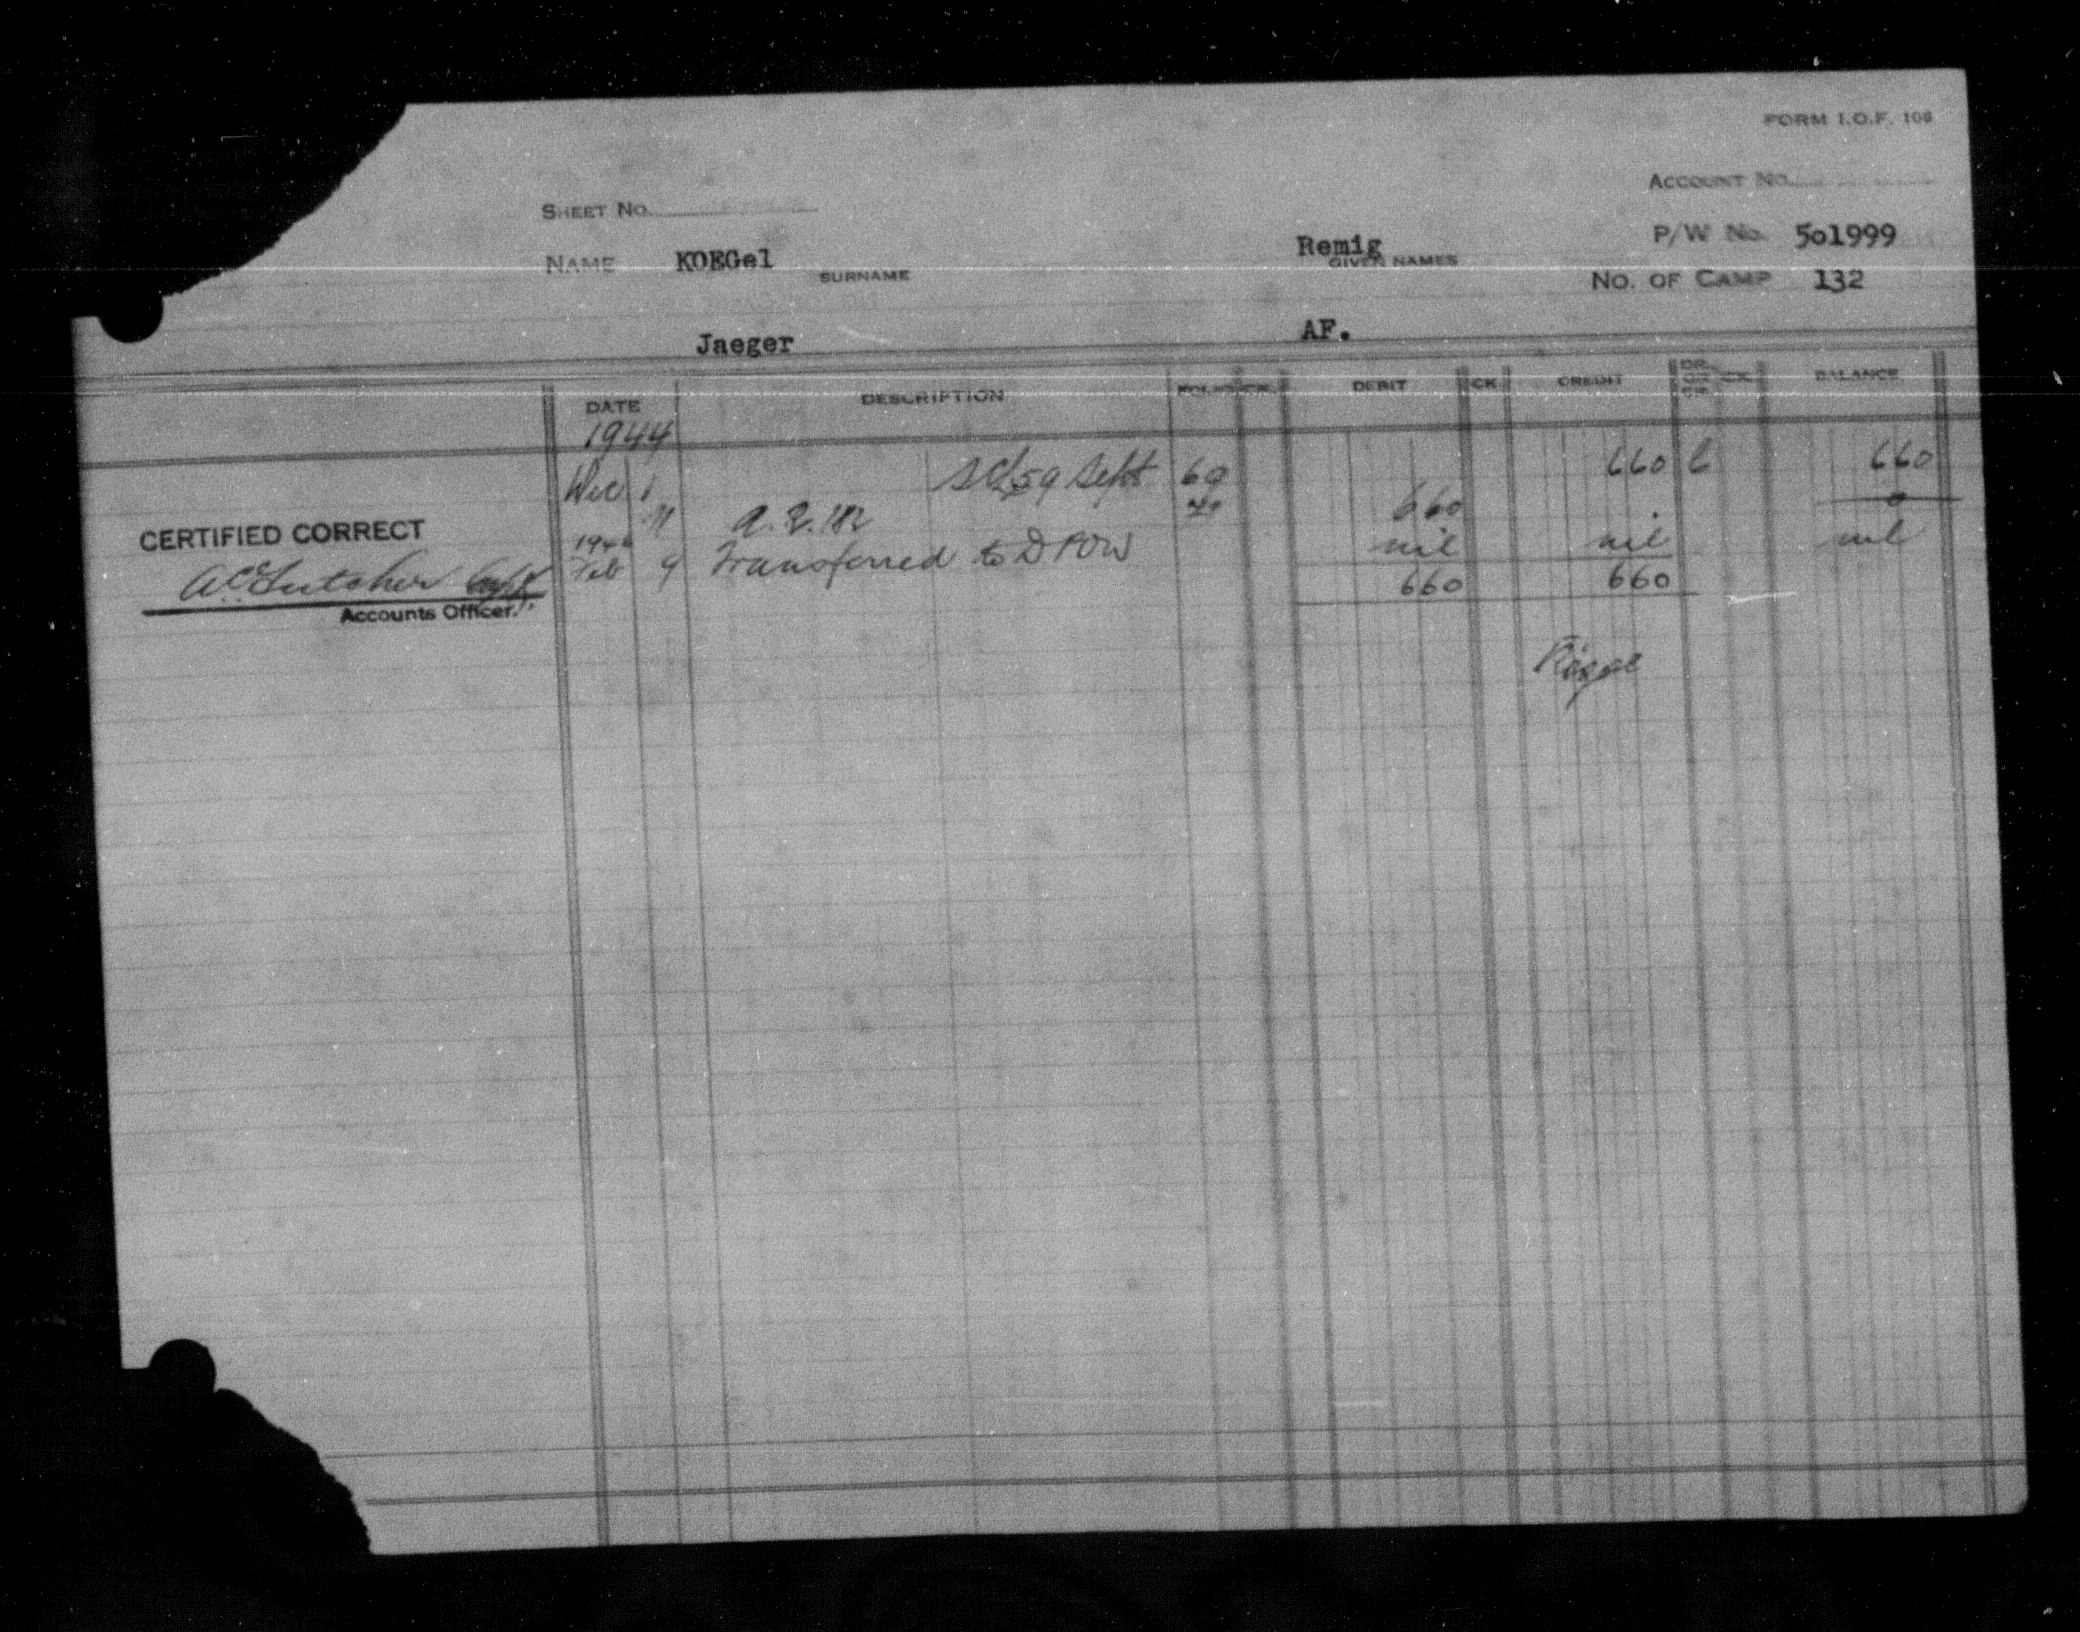 FORM I.O.F. 106
ACCOUNT No.
SHEET No.
P/W No. 501999
NAME KOEGel SURNAME Remig GIVEN NAMES
No. OF CAMP 132
Jaeger AF.
DATE DESCRIPTION FOLIO CK. DEBIT CK CREDIT DR. OR CR. CK. BALANCE
1944
Dec 1 Sept 60 660 660
11 660 0
CERTIFIED CORRECT
Feb 9 Transferred to D POW nil nil nil
Accounts Officer.
660 660